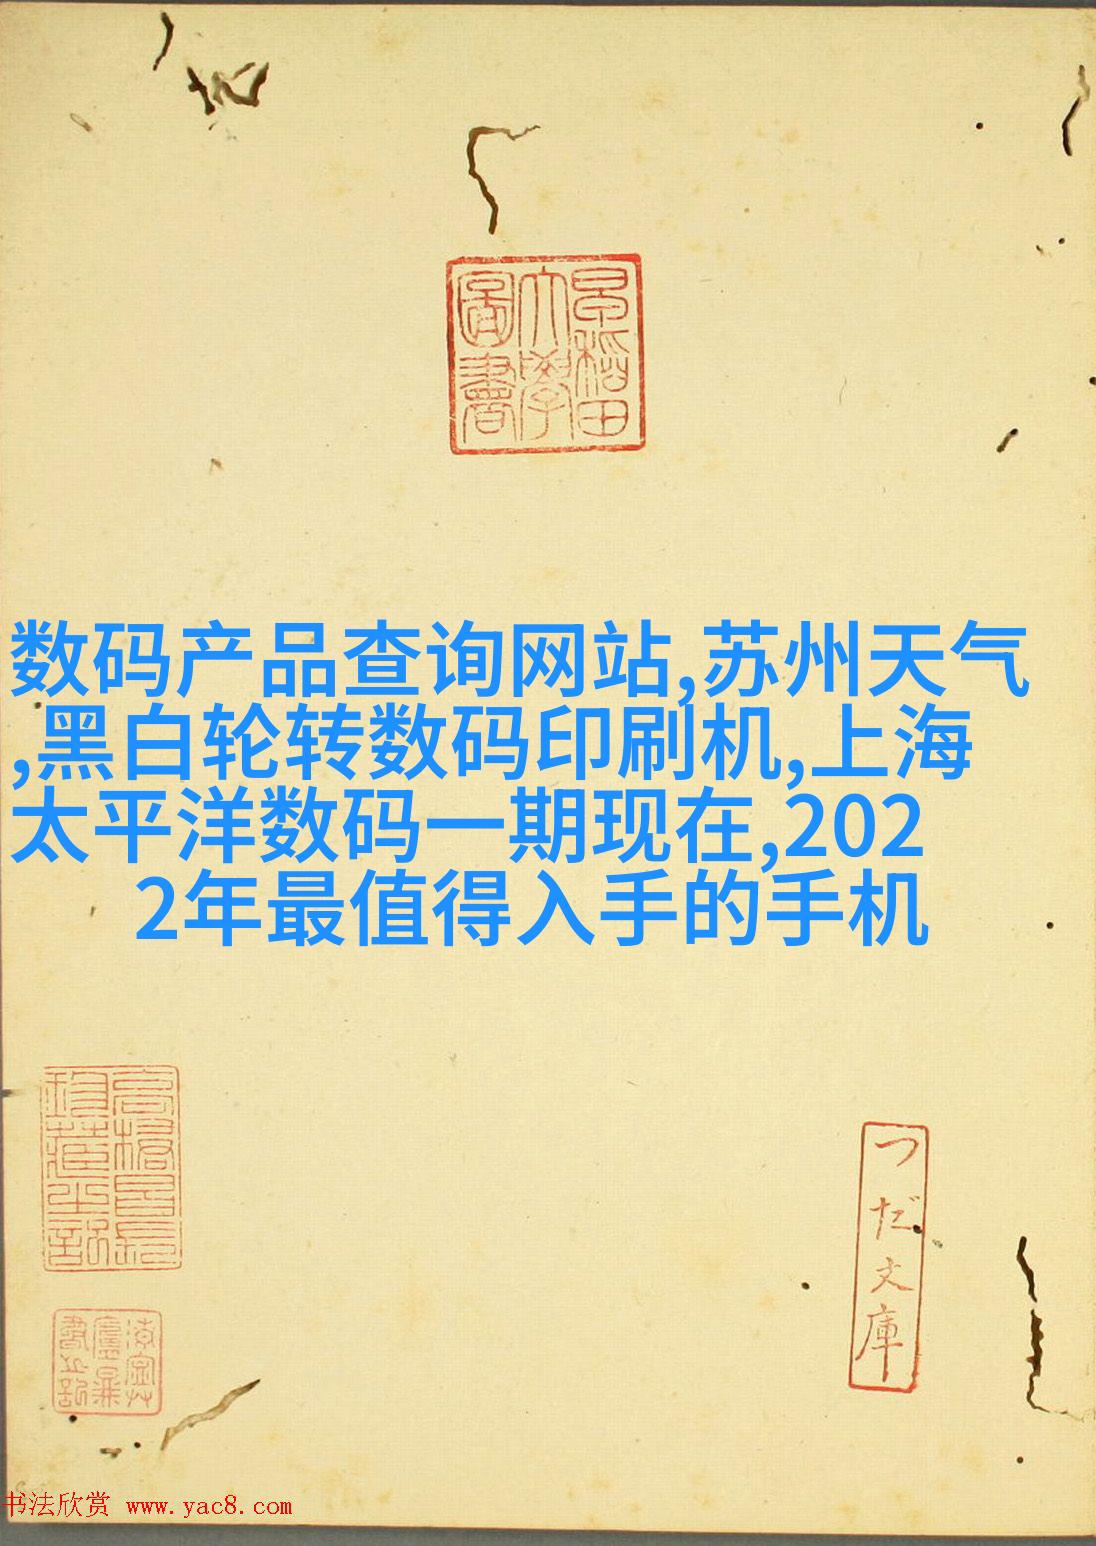 早稻田
大學
圖書
数码产品查询网站,苏州天气
,黑白轮转数码印刷机,上海
太平洋数码一期现在,202
2年最值得入手的手机
つだ文庫
书法欣赏 www.yac8.com